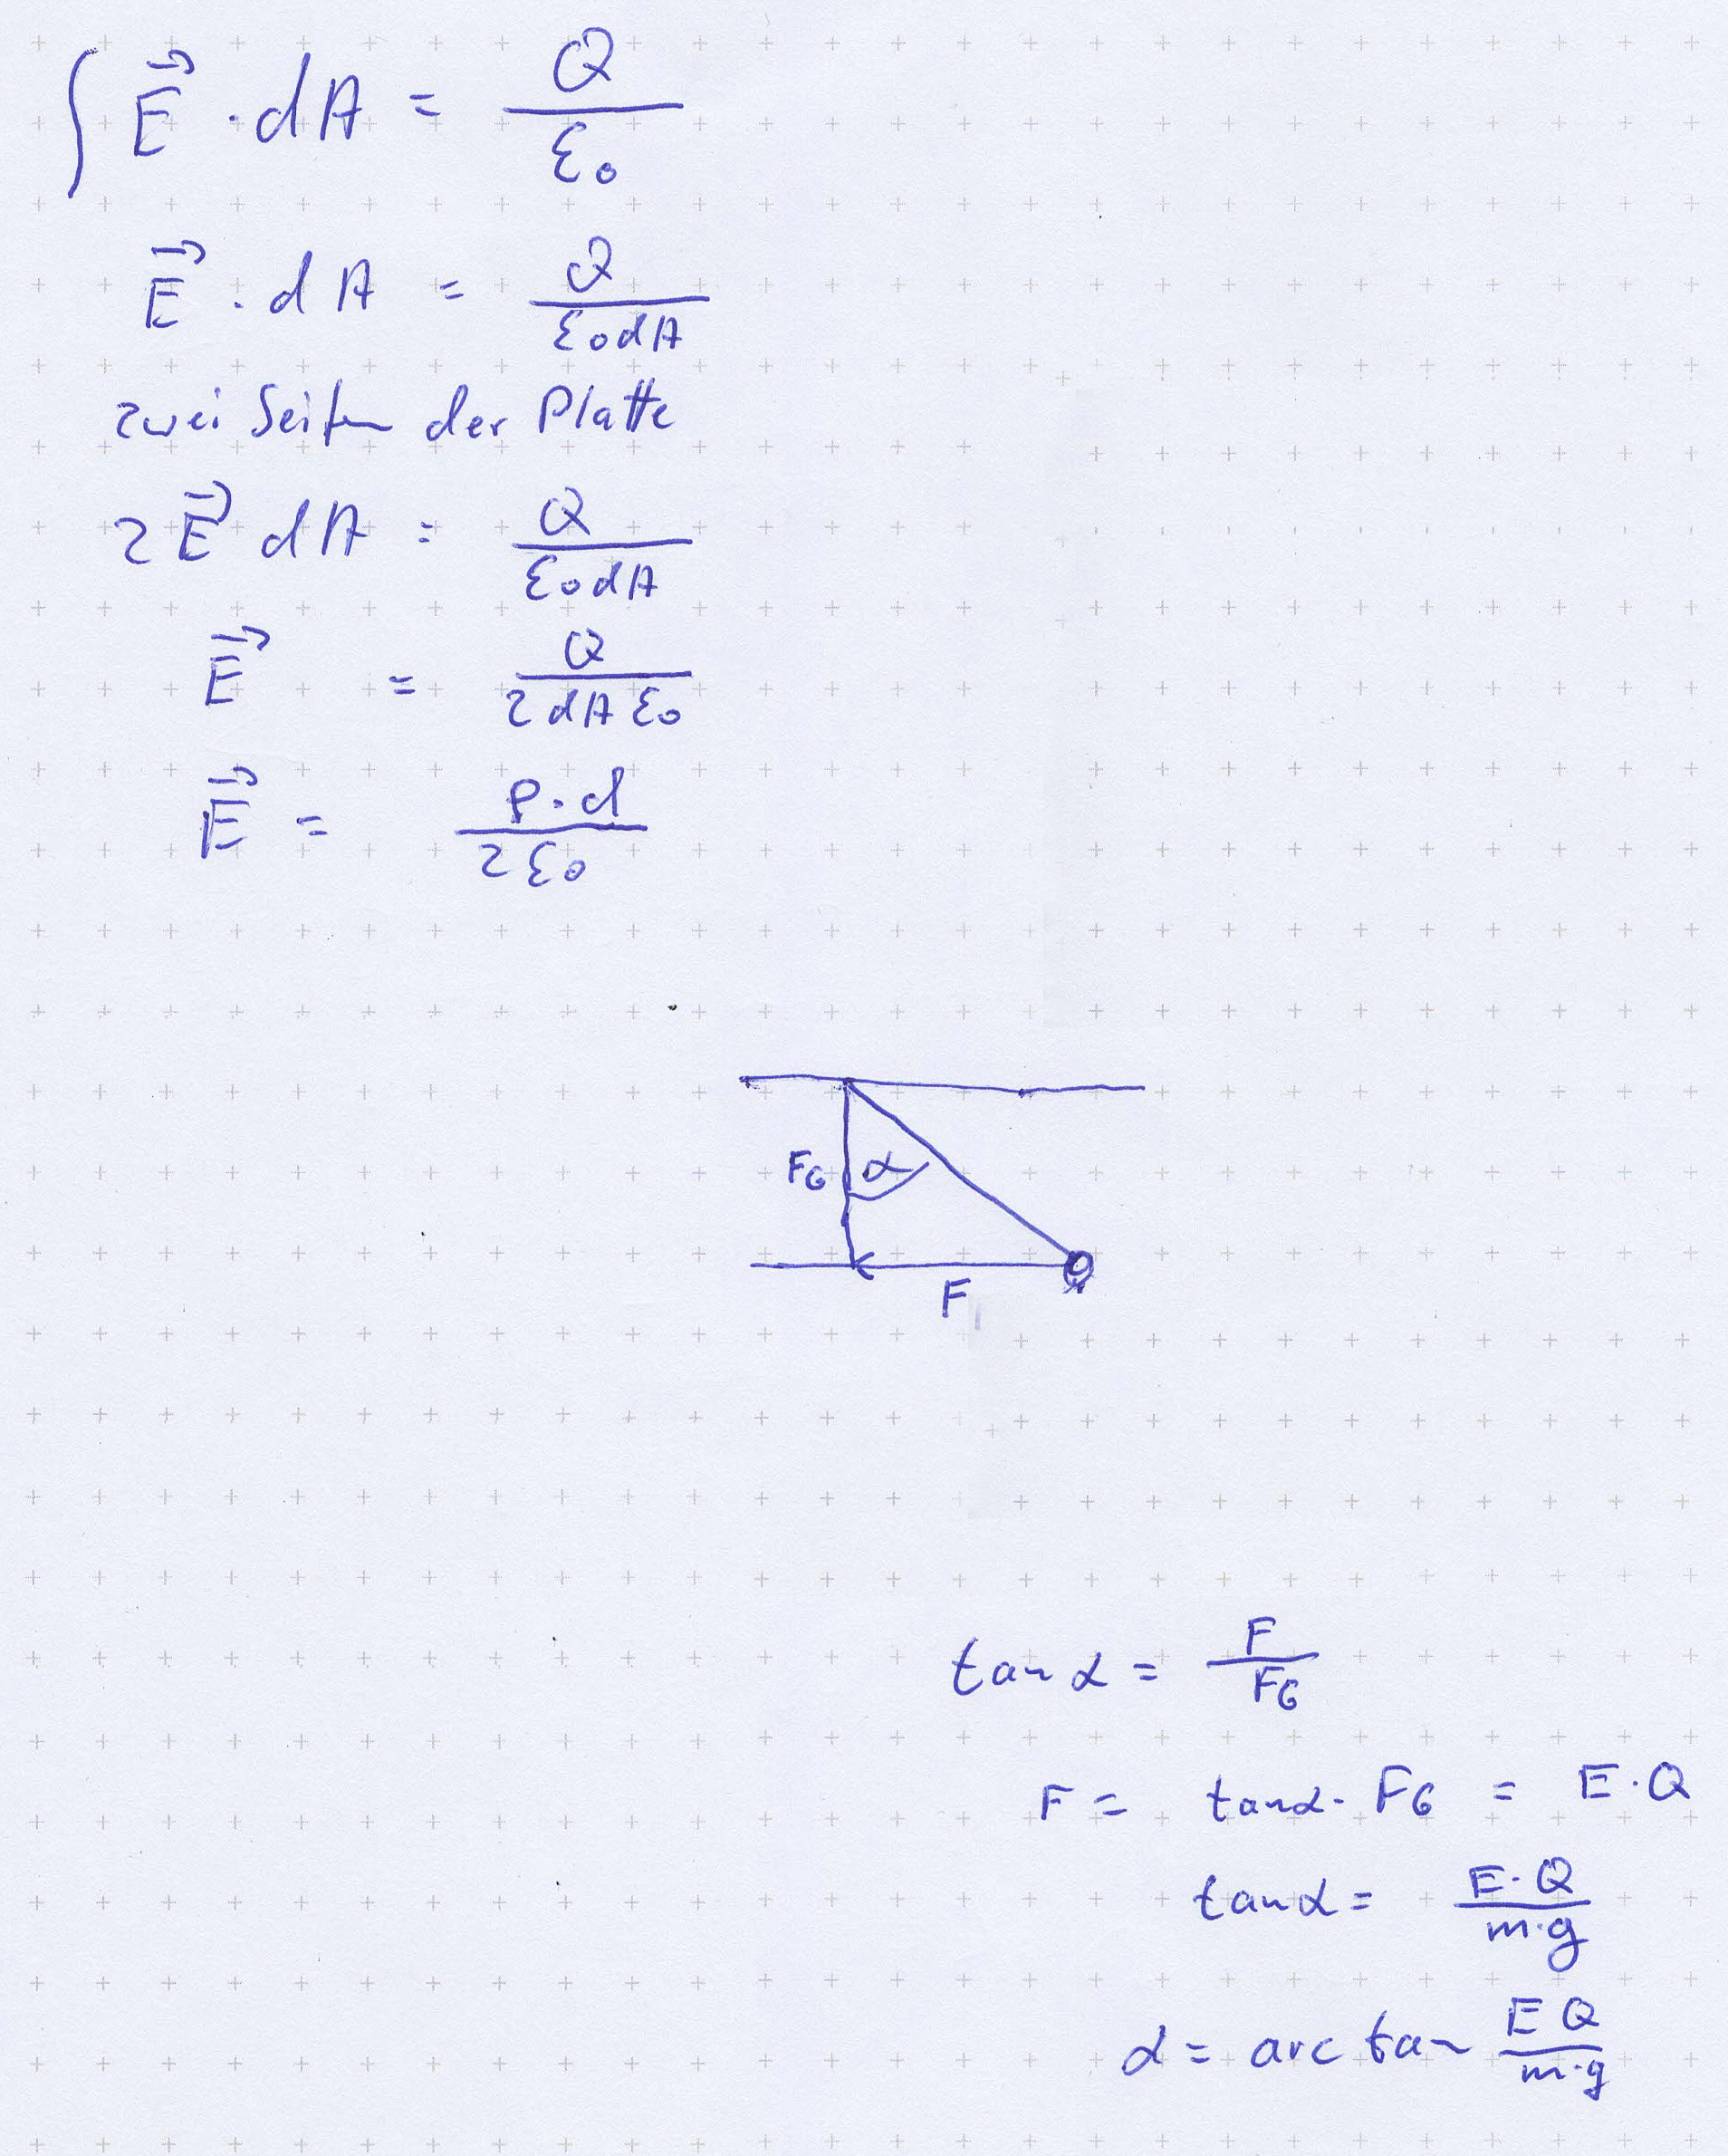 ∫ E⃗ · dA = Q / ε₀
E⃗ · dA = Q / ε₀dA
zwei Seiten der Platte
2 E⃗ dA = Q / ε₀dA
E⃗ = Q / 2dAε₀
E⃗ = ρ·d / 2ε₀
FG α
F
tan α = F / FG
F = tanα · FG = E·Q
tanα = E·Q / m·g
α = arc tan EQ / m·g